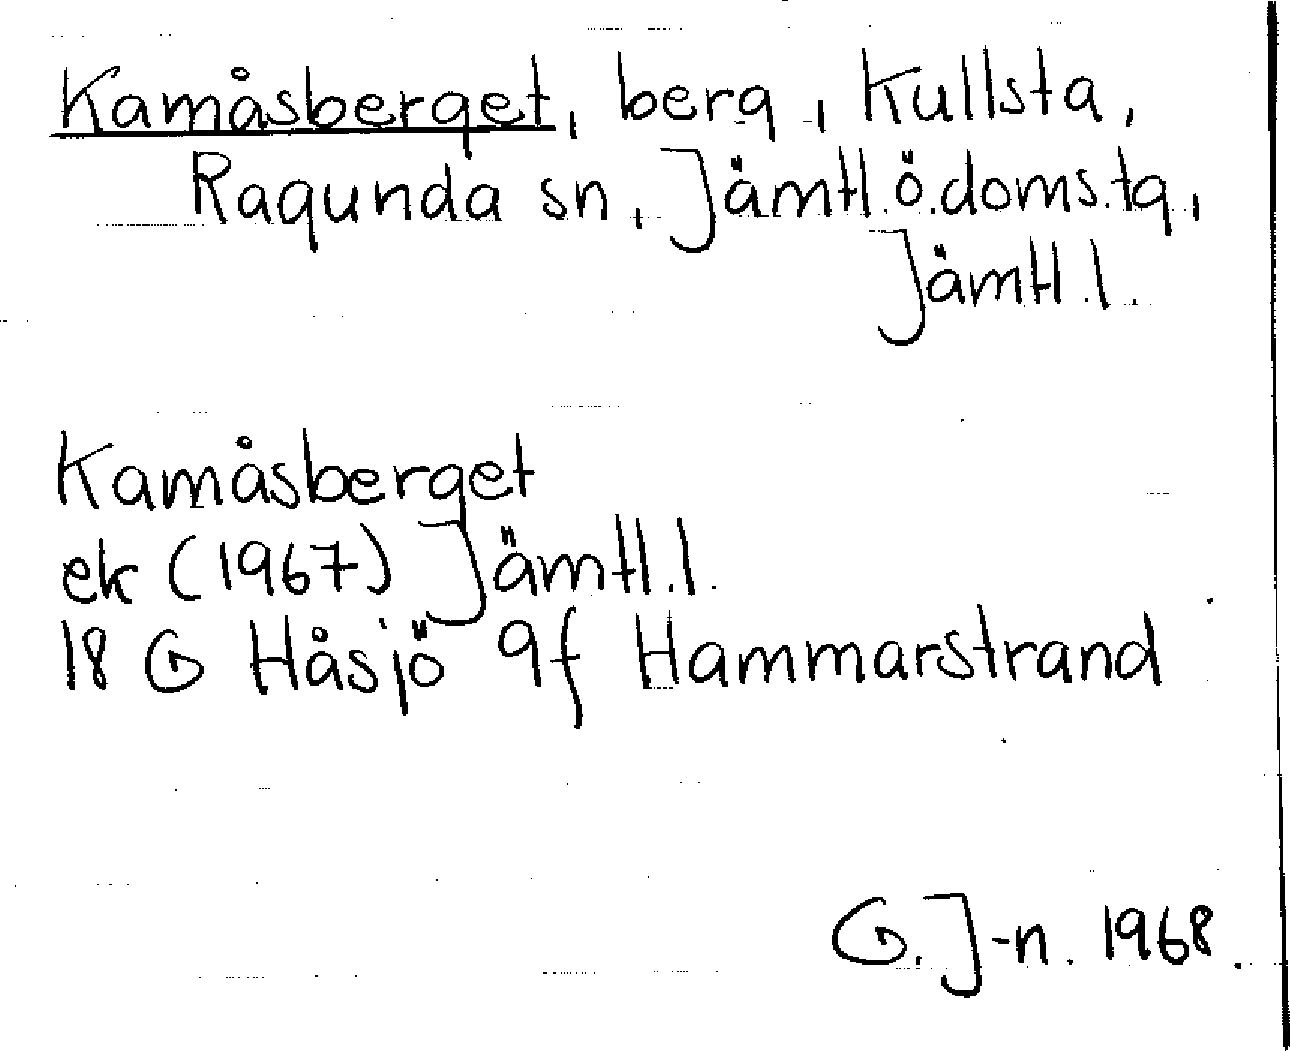 Kamåsberget, berg, Kullsta,
Ragunda sn, Jämtl.ö.doms.tg,
Jämtl.l.
Kamåsberget
ek (1967) Jämtl.l.
18 G Håsjö 9f Hammarstrand
G.J-n. 1968.